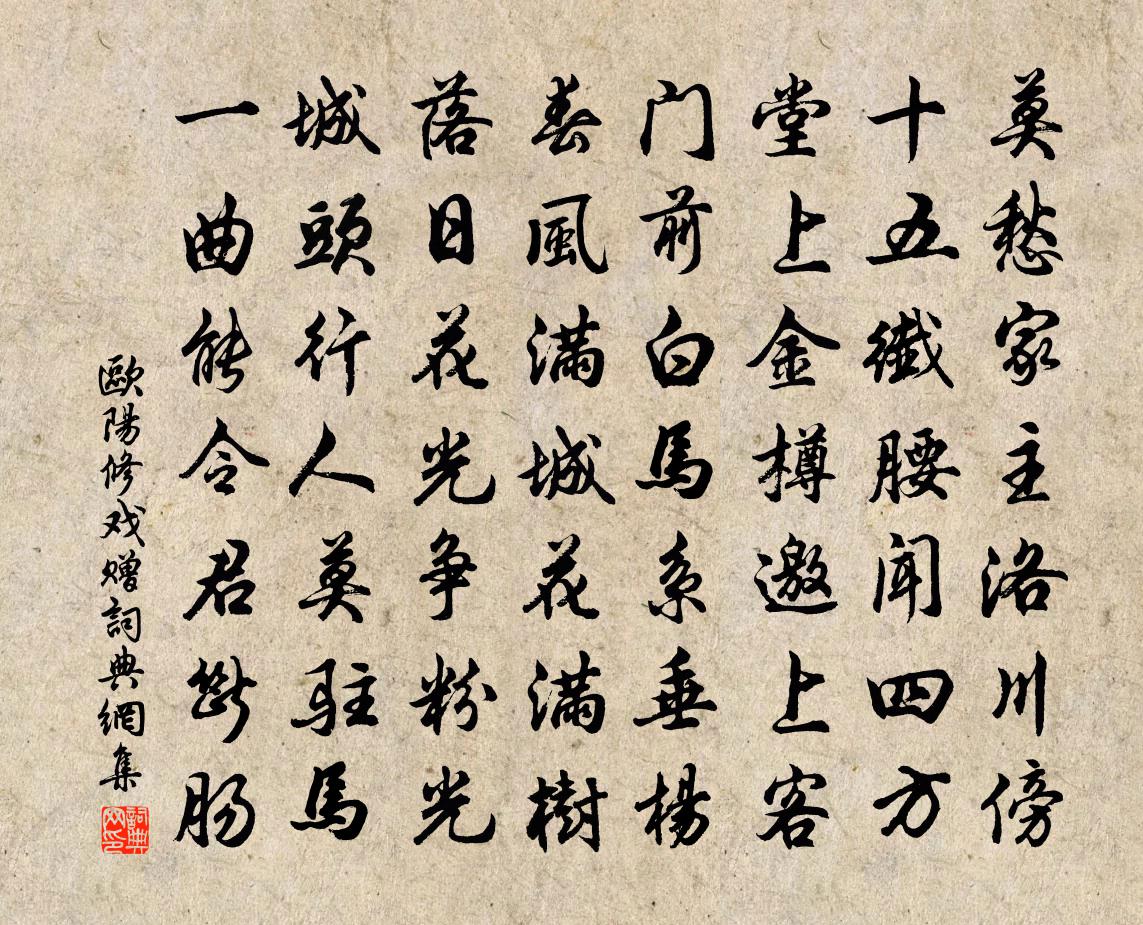 莫愁家主洛川傍
十五纖腰闻四方
堂上金樽邀上客
门前白馬系垂楊
春風滿城花滿樹
落日花光争粉光
城頭行人莫駐馬
一曲能令君斷肠
歐陽修戏贈詞典網集
詞典网印